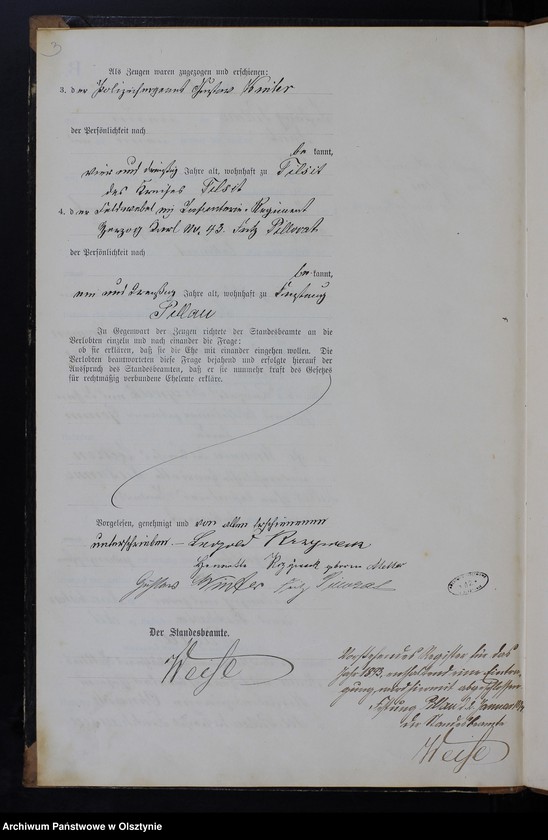 3
Als Zeugen waren zugezogen und erschienen:
3. der Polizeisergeant Gustav
der Persönlichkeit nach
be kannt,
vier und dreißig Jahre alt, wohnhaft zu Tilsit
des Kreises Tilsit
4. der Feldwebel im Infanterie-Regiment
Herzog Karl No. 43. Fritz Pillorat
der Persönlichkeit nach
be kannt,
ein und dreißig Jahre alt, wohnhaft zu Festung
Pillau
In Gegenwart der Zeugen richtete der Standesbeamte an die
Verlobten einzeln und nach einander die Frage:
ob sie erklären, daß sie die Ehe mit einander eingehen wollen. Die
Verlobten beantworteten diese Frage bejahend und erfolgte hierauf der
Ausspruch des Standesbeamten, daß er sie nunmehr kraft des Gesetzes
für rechtmäßig verbundene Eheleute erkläre.
Vorgelesen, genehmigt und von allen Erschienenen
unterschrieben. – Leopold
geborene
Gustav Fritz
Der Standesbeamte.
Weise
Vorstehendes Register für das
Jahr 1893, enthaltend eine Eintra-
gung, wird hiermit abgeschlossen
Festung Pillau d. Januar
der Standesbeamte
Weise
Archiwum Państwowe w Olsztynie